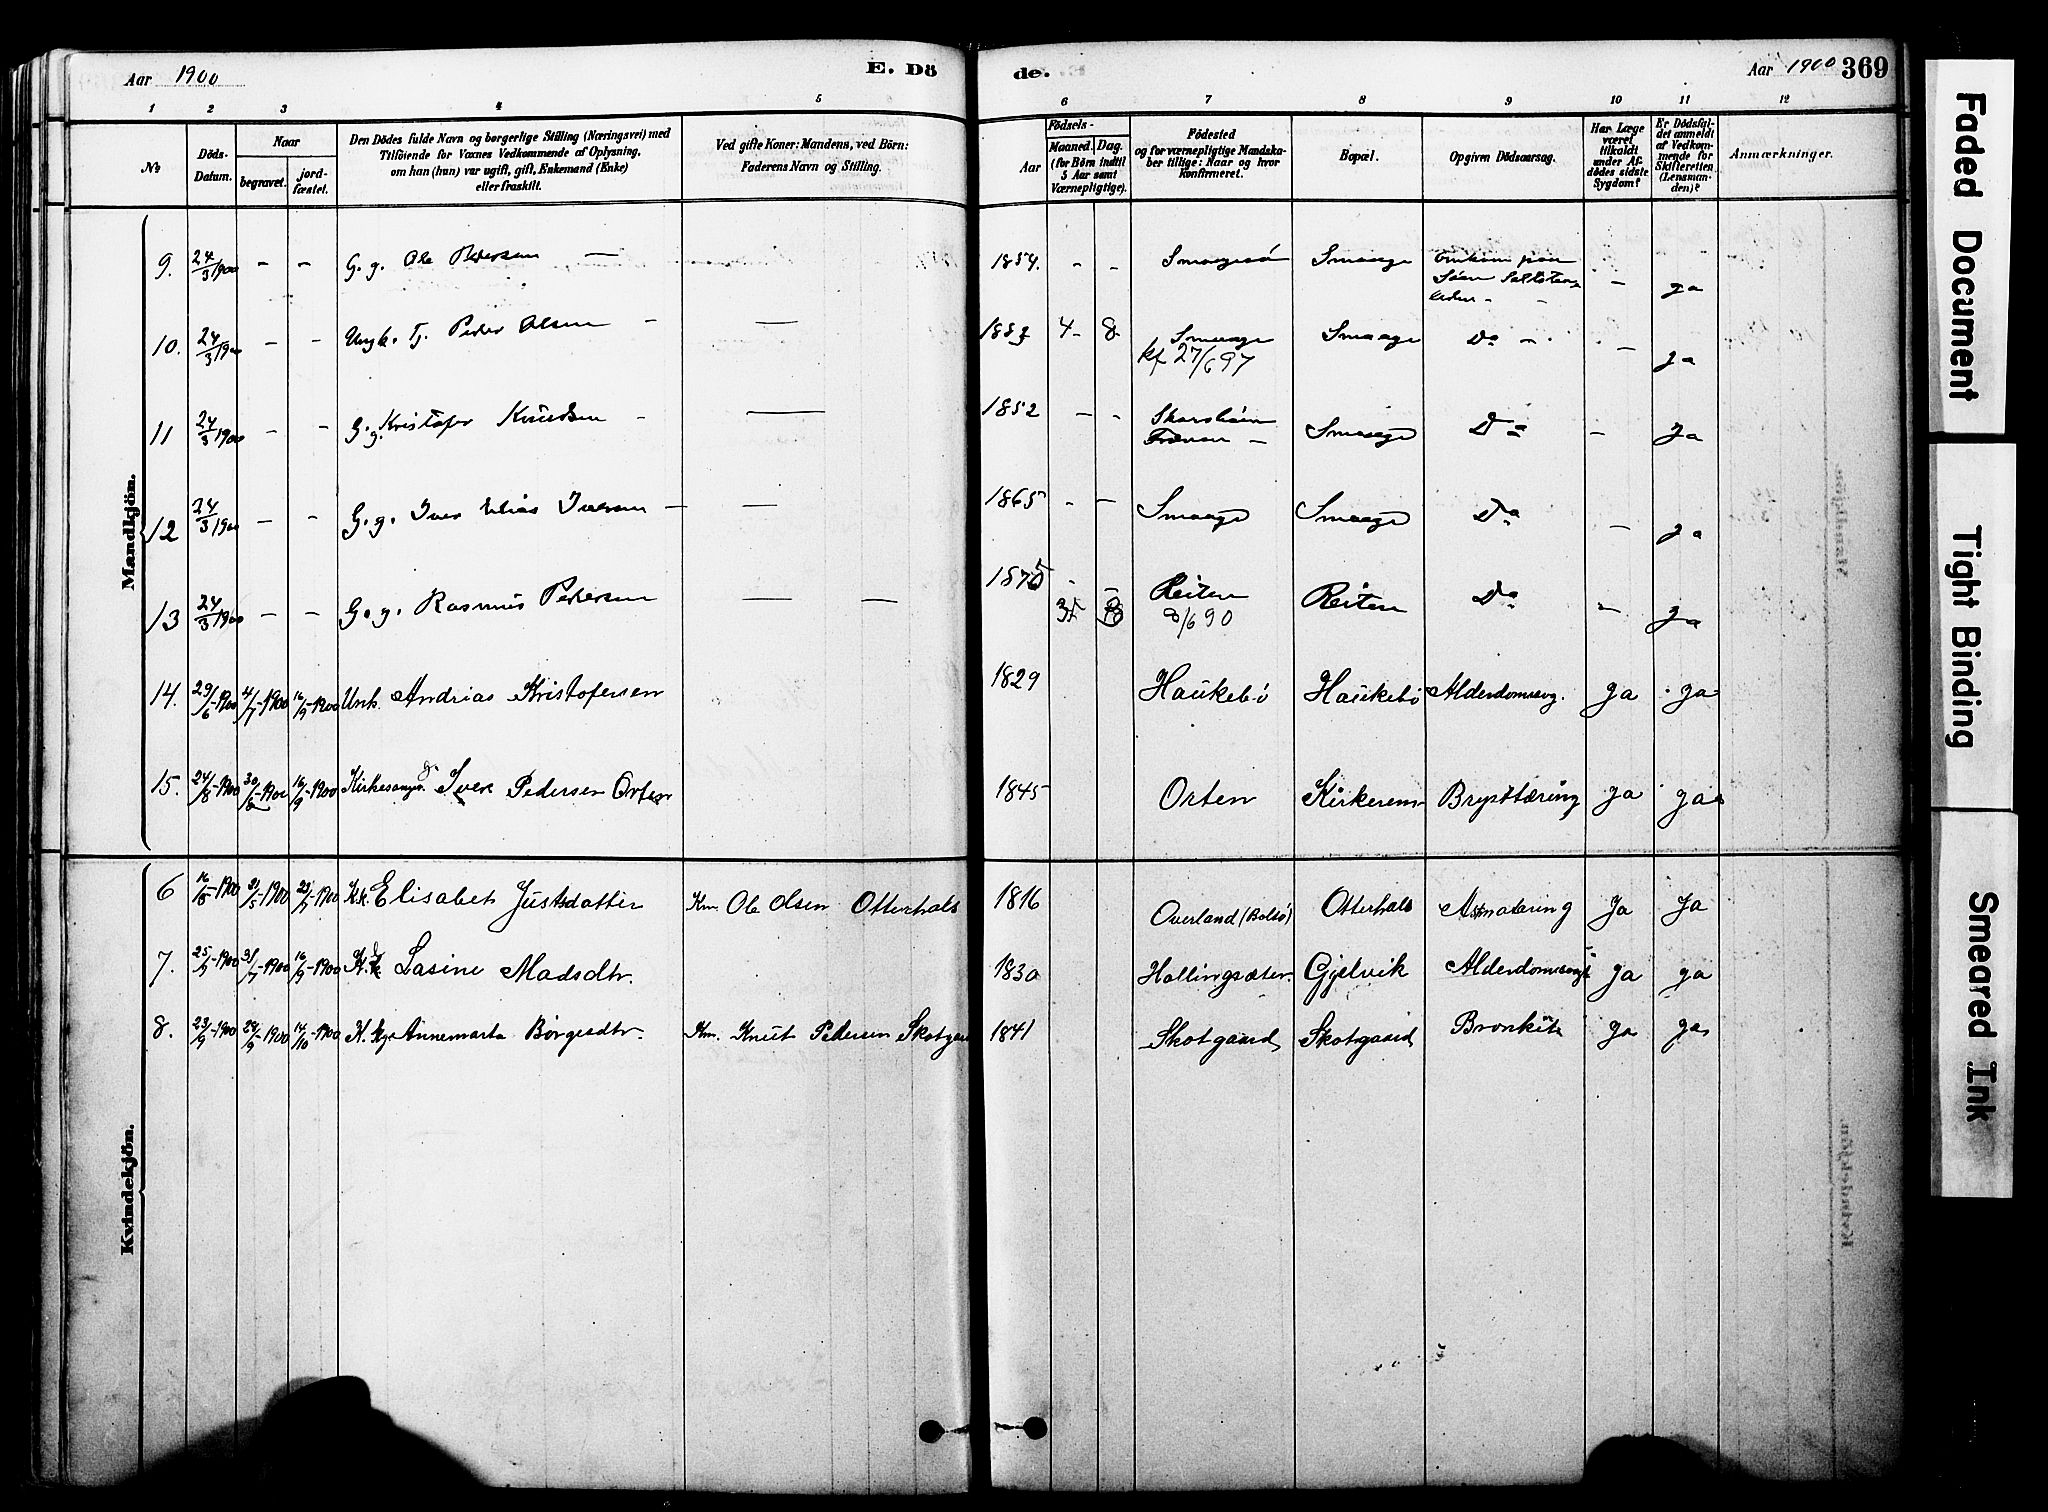 Aar 1900 E. Dö de. Aar 1900 369
1 2 3 4 5 6 7 8 9 10 11 12
№ Döds-Datum. Naar begravet. jord-fæstet. Den Dödes fulde Navn og borgerlige Stilling (Næringsvei) med Tilföiende for Voxnes Vedkommende af Oplysning, om han (hun) var ugift, gift, Enkemand (Enke) eller fraskilt. Ved gifte Koner: Mandens, ved Börn: Faderens Navn og Stilling. Födsels- Aar Maaned. Dag. (for Börn indtil 5 Aar samt Værnepligtige). Födested og for værnepligtige Mandskaber tillige: Naar og hvor Konfirmeret. Bopæl. Opgiven Dödsaarsag. Har Læge været tilkaldt under Afdödes sidste Sygdom? Er Dödsfaldet anmeldt af Vedkommende for Skifteretten (Lensmanden)? Anmærkninger.
Mandkjön.
9. 24/3 1900 - - G. g. Ole Pedersen - 1854. - - Smaagesö Smaage Omkom paa Söen - ja
10. 24/3 1900 - - Ungk. Tj. Peder Olsen - - 4- 8- Smaage kf 27/6 97 Smaage Do - - ja
11 24/3 1900 - - G. g. Kristofer Knudsen - - 1852 - - Smaage Do - ja
12 24/3 1900 - - G. g. Iver Elias Iversen - - 1865 - - Smaage Smaage Do - ja
13 24/3 1900 - - G. g. Rasmus Pedersen - - Reiten 8/6 90 Reiten Do - ja
14. 29/6-1900 4/7-1900 16/9-1900 Unk. Andrias Kristofersen 1829 Haukebö Haukebö Alderdomssvg. ja ja
15. 24/8-1900 30/8-1900 16/9-1900 Kirkesanger Iver Pedersen Orten 1845 Orten Kirkerem Brysttæring ja ja
Kvindekjön.
6 16/5-1900 31/5-1900 1900 Kk. Elisabet Justsdatter Km. Ole Olsen Otterhals 1816 Overland (Bolsö) Otterhals ja ja
7. 1900 31/7-1900 16/9-1900 Lasine Madsdtr. 1830 Hollingsæter Gjelvik ja ja
8. 23/9-1900 29/9-1900 14/10-1900 K. Kge Annemarta Börgesdtr. Km. Knut Pedersen Skotgaard 1841 Skotgaard Skotgaard Bronkit ja ja
Faded Document
Tight Binding
Smeared Ink